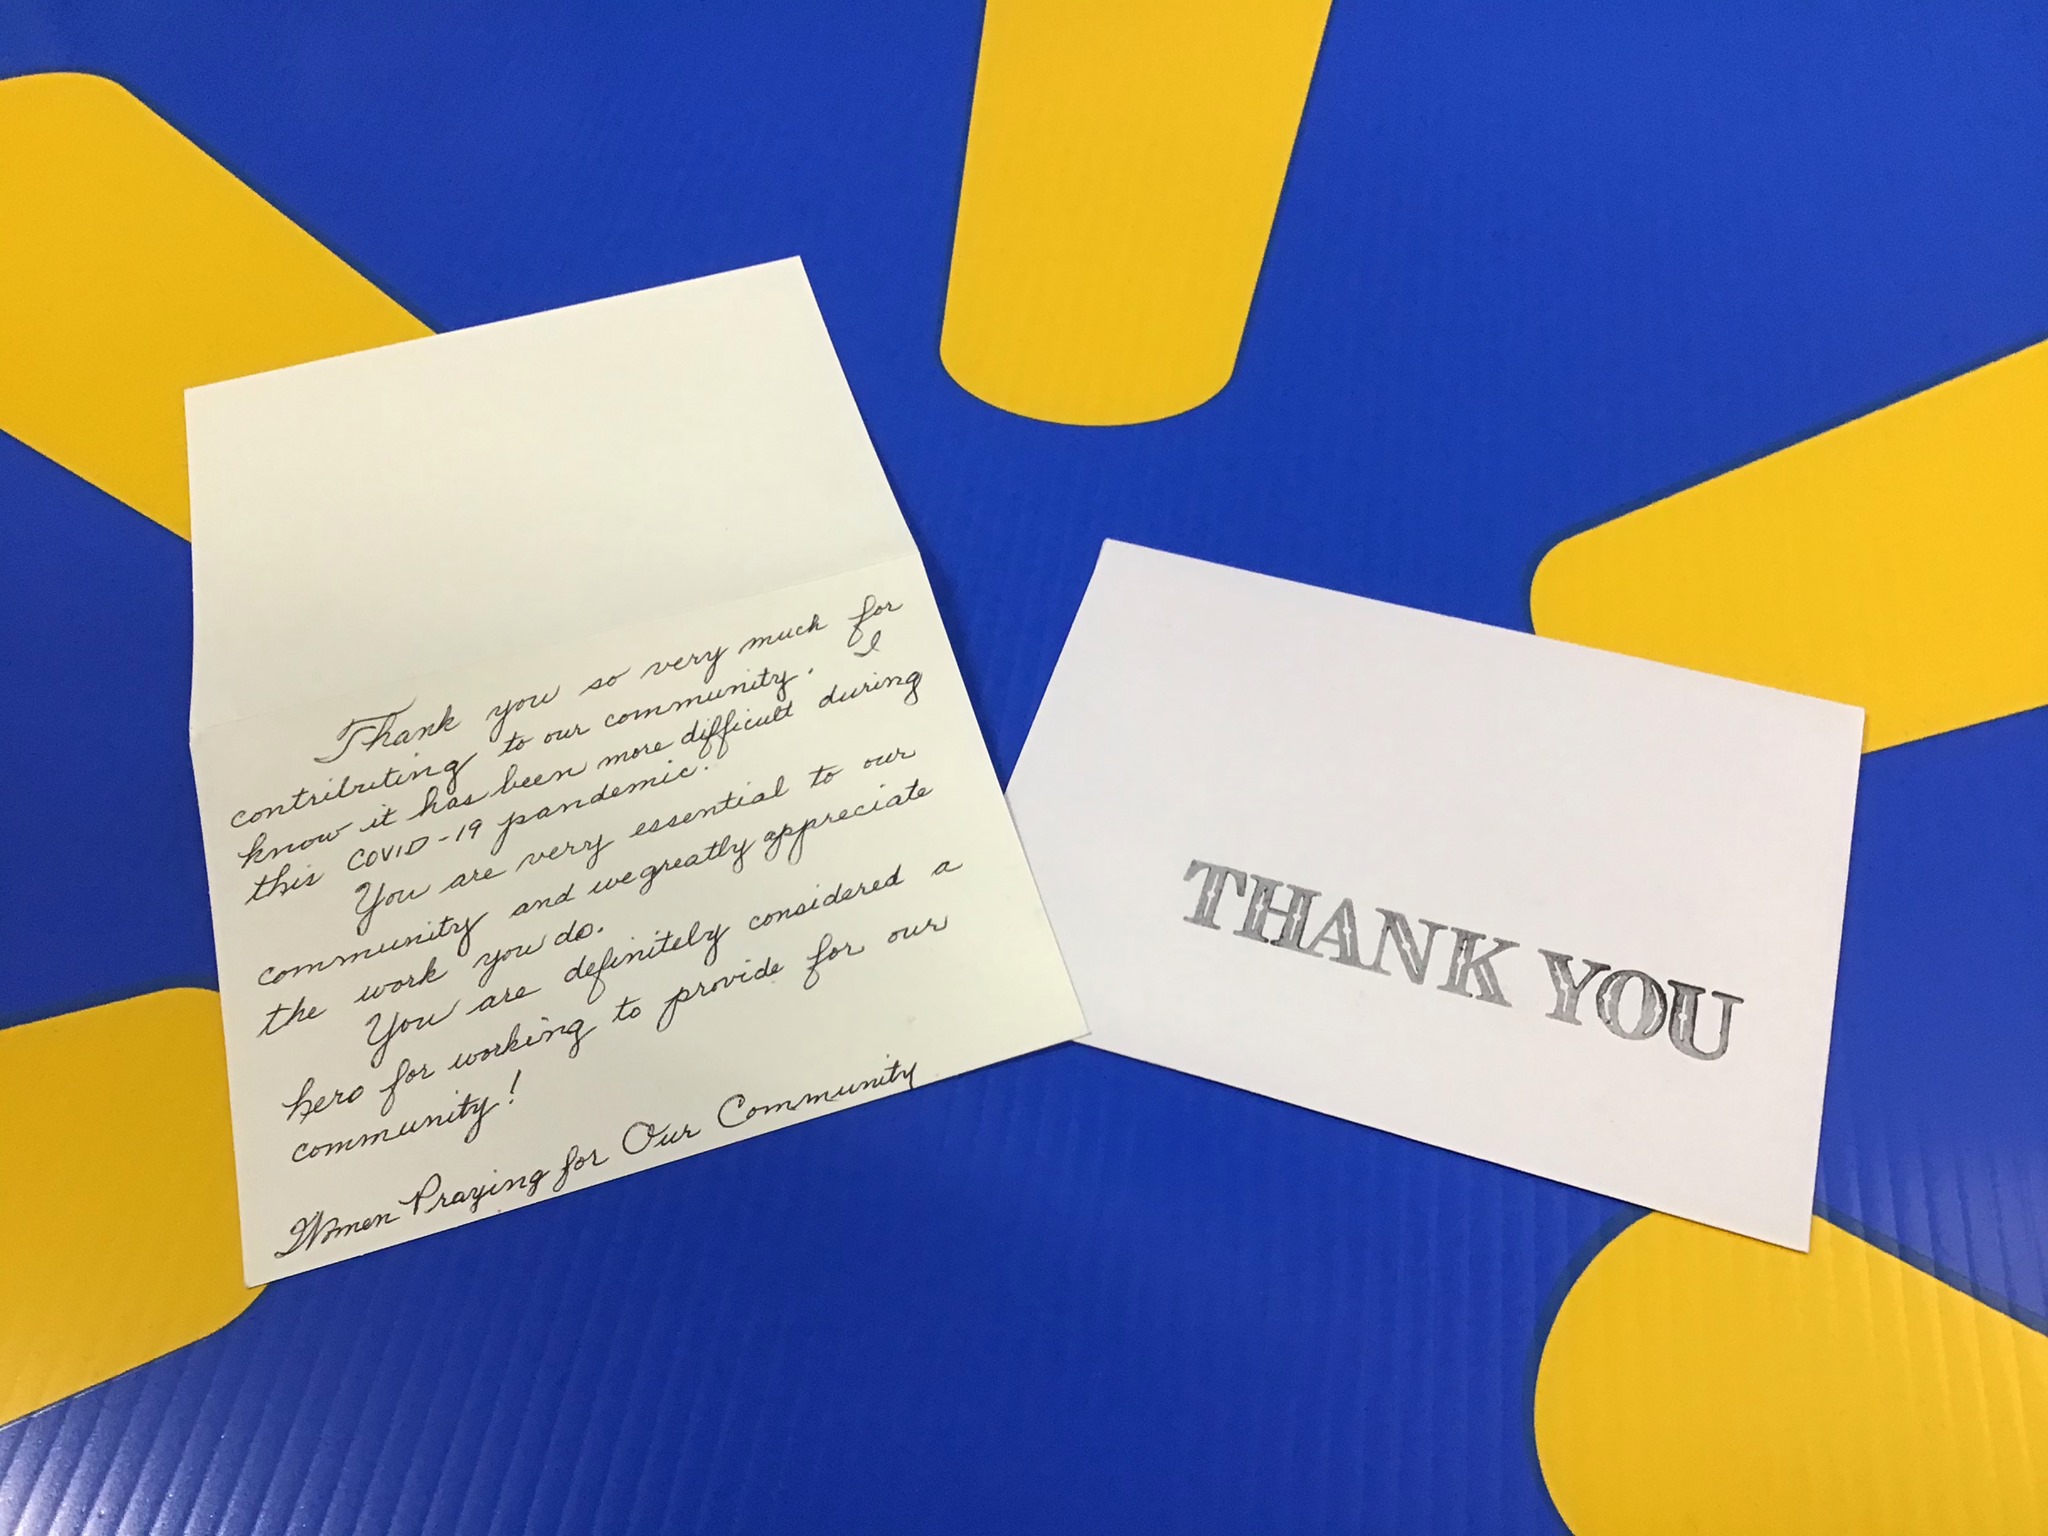 Thank you so very much for
contributing to our community. I
know it has been more difficult during
this COVID-19 pandemic.
You are very essential to our
community and we greatly appreciate
the work you do.
You are definitely considered a
hero for working to provide for our
community!
Women Praying for Our Community
THANK YOU